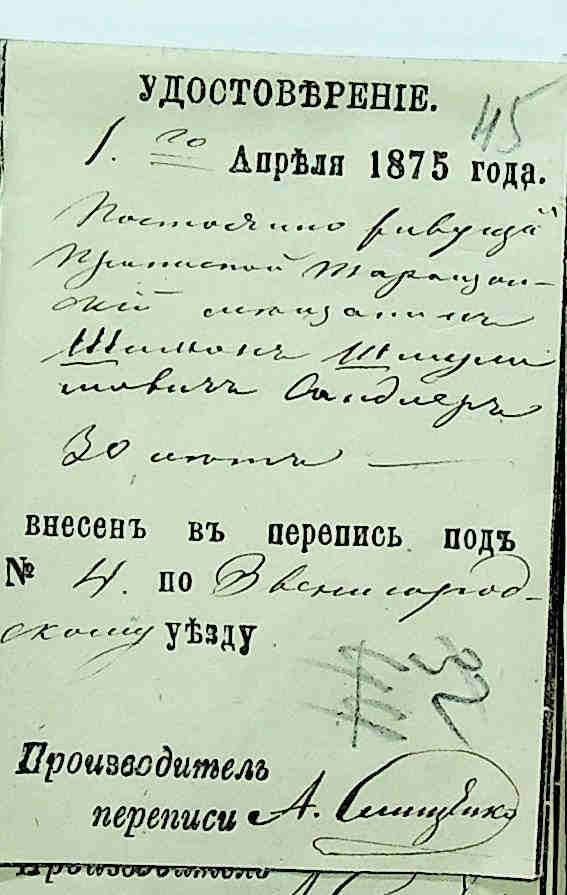 УДОСТОВѢРЕНІЕ.
45
1.го Апрѣля 1875 года.
Постоянно живущій
Припиской Таращан-
скій мѣщанинъ
Шимонъ Шмулi
мовичъ Сандлеръ
30 лѣтъ —
внесенъ въ перепись подъ
№ 4. по Звенигород-
скому уѣзду
Производитель
переписи А.
Производитель